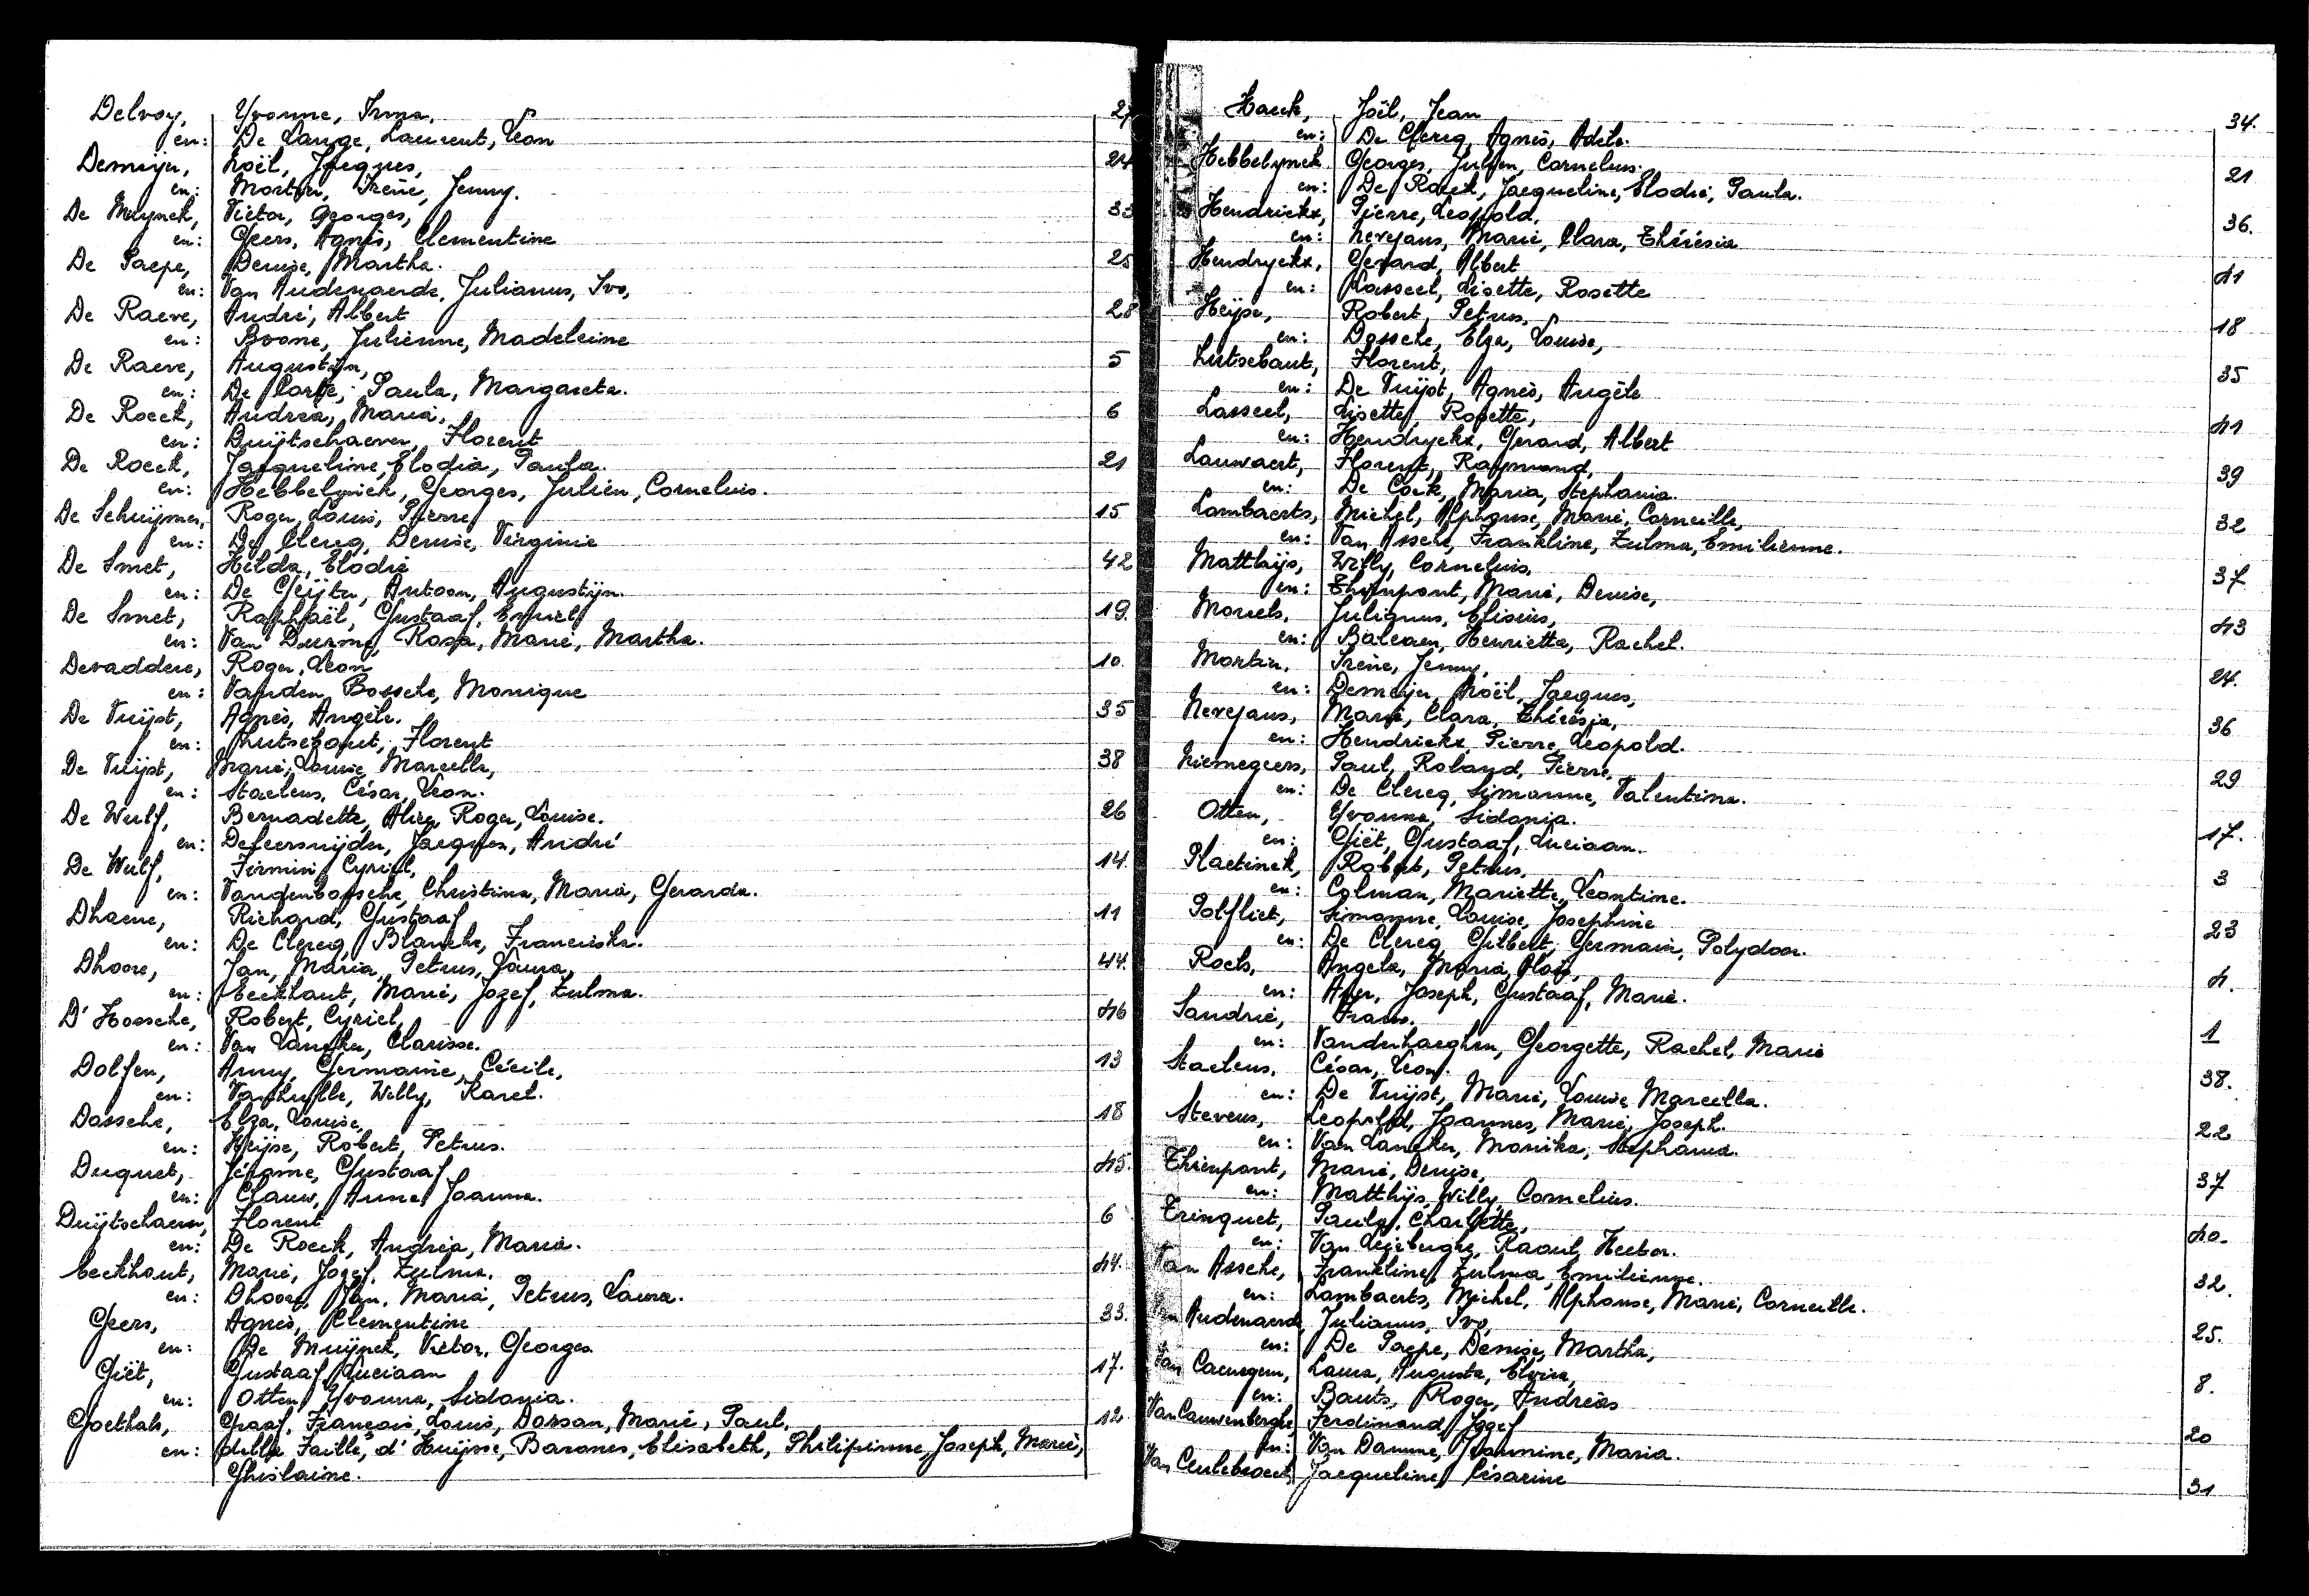 Delvoy, Yvonne, Irma. 27
en: De Lange, Laurent, Leon
Demeijer, Noël, Jacques, 24
en: Mortier, Irène, Jenny.
De Muynck, Victor, Georges, 33
en: Geers, Agnès, Clementine
De Paepe, Denise, Martha. 25
en: Van Audenaerde, Julianus, Ivo,
De Raeve, André, Albert 28
en: Boone, Julienne, Madeleine
De Raeve, Augustijn, 5
en: De Corte, Paula, Margareta.
De Roeck, Andrea, Maria, 6
en: Duijtschaever, Florent
De Roeck, Jacqueline, Elodia, Paula. 21
en: Hebbelynck, Georges, Julien, Cornelius.
De Schuijmer, Roger, Louis, Pierre 15
en: De Clercq, Denise, Virginie
De Smet, Hilda, Elodie 42
en: De Geijter, Antoon, Augustijn.
De Smet, Raphaël, Gustaaf, Emiel 19.
en: Van Durme, Rosa, Marie, Martha.
Devaddere, Roger, Leon 10.
en: Vanden Bossche, Monique
De Vuijst, Agnès, Angèle. 35
en: Lutsebaut, Florent
De Vuijst, Marie, Louise, Marcella, 38
en: Staelens, César, Leon.
De Wulf, Bernadette, Alice, Roger, Louise. 26
en: Deleersnijder, Jacques, André
De Wulf, Firmin, Cyriel, 14.
en: Vandenbossche, Christina, Maria, Gerarda.
Dhaene, Richard, Gustaaf 11
en: De Clercq, Blanche, Franciska.
Dhoore, Jan, Maria, Petrus, Laura, 44.
en: Eeckhaut, Marie, Jozef, Zulma.
D'Hossche, Robert, Cyriel, 46
en: Van Lancker, Clarisse.
Dolfen, Anny, Germaine, Cécile, 13
en: Vanhulle, Willy, Karel.
Dossche, Elza, Louise, 18
en: Heijse, Robert, Petrus.
Duquet, Jérome, Gustaaf 45.
en: Clauw, Anne, Joanna.
Duijtschaever, Florent 6
en: De Roeck, Andrea, Maria.
Eeckhaut, Marie, Jozef, Zulma. 44.
en: Dhoore, Jan, Maria, Petrus, Laura.
Geers, Agnès, Clementine 33.
en: De Muijnck, Victor, Georges
Giët, Gustaaf, Luciaan 17.
en: Otten, Yvonna, Sidonia.
Goethals, Graaf, François, Louis, Dorsan, Marie, Paul. 12
en: della Faille, d'Huijsse, Barones, Elisabeth, Philipinne, Joseph, Marie,
Ghislaine.
Haeck, Joël, Jean 34.
en: De Clercq, Agnès, Adèle.
Hebbelynck Georges, Julien, Cornelius. 21
en: De Roeck, Jacqueline, Elodie, Paula.
Hendrickx, Pierre, Leopold. 36.
en: Nevejans, Marie, Clara, Thérésia
Hendryckx, Gerard, Albert 41
en: Lasseel, Lisette, Rosette
Heijse, Robert, Petrus. 18
en: Dossche, Elza, Louise,
Lutsebaut, Florent, 35
en: De Vuijst, Agnès, Angèle
Lasseel, Lisette, Rosette, 41
en: Hendryckx, Gerard, Albert
Lauwaert, Florent, Raymond, 39
en: De Cock, Maria, Stephania.
Lambaerts, Michel, Alphonse, Marie, Corneille, 32
en: Van Assche, Frankline, Zulma, Emilienne.
Matthijs, Willy, Cornelius. 37
en: Thienpont, Marie, Denise,
Moriels, Julianus, Elisius, 43
en: Balcaen, Henrietta, Rachel.
Mortier, Irène, Jenny, 24.
en: Demeijer, Noël, Jacques,
Nevejans, Marie, Clara, Thérésia, 36
en: Hendrickx, Pierre, Leopold.
Niemegeers, Paul, Roland, Pierre. 29
en: De Clercq, Simonne, Valentina.
Otten, Yvonna, Sidonia. 17.
en: Giët, Gustaaf, Luciaan.
Plaetinck, Robert, Petrus. 3
en: Colman, Mariette, Leontine.
Polfliet, Simonne, Louise, Josephine 23
en: De Clercq, Gilbert, Germain, Polydoor.
Roels, Angela, Maria, 4.
en: Joseph, Gustaaf, Marie.
Sandrie, Frans. 1
en: Vanderhaeghen, Georgette, Rachel, Marie
Staelens, César, Leon. 38.
en: De Vuijst, Marie, Louise, Marcella.
Stevens, Leopold, Joannes, Marie, Joseph. 22
en: Van Lancker, Monika, Stephania.
Thienpont, Marie, Denise, 37
en: Matthijs, Willy, Cornelius.
Trinquet, Paula, Charlotte, 40.
en: Van Liefberghe, Raoul, Hector.
Van Assche, Frankline, Zulma, Emilienne. 32.
en: Lambaerts, Michel, Alphonse, Marie, Corneille.
Van Audenaerde Julianus, Ivo, 25.
en: De Paepe, Denise, Martha,
Van Caenegem, Laura, Augusta, Elvira, 8.
en: Bauts, Roger, Andreas
Van Cauwenberghe, Ferdinand, Jozef 20
en: Van Damme, Jeannine, Maria.
Van Ceulebroeck, Jacqueline, Césarine 31